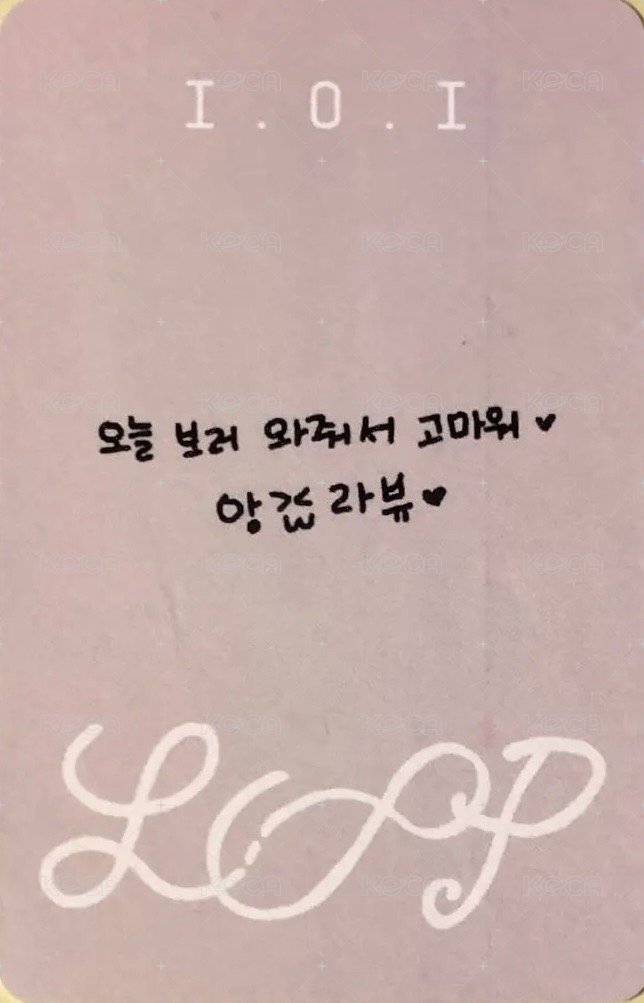 I.O.I
오늘 보러 와줘서 고마워 ♥
라뷰 ♥
LOOP